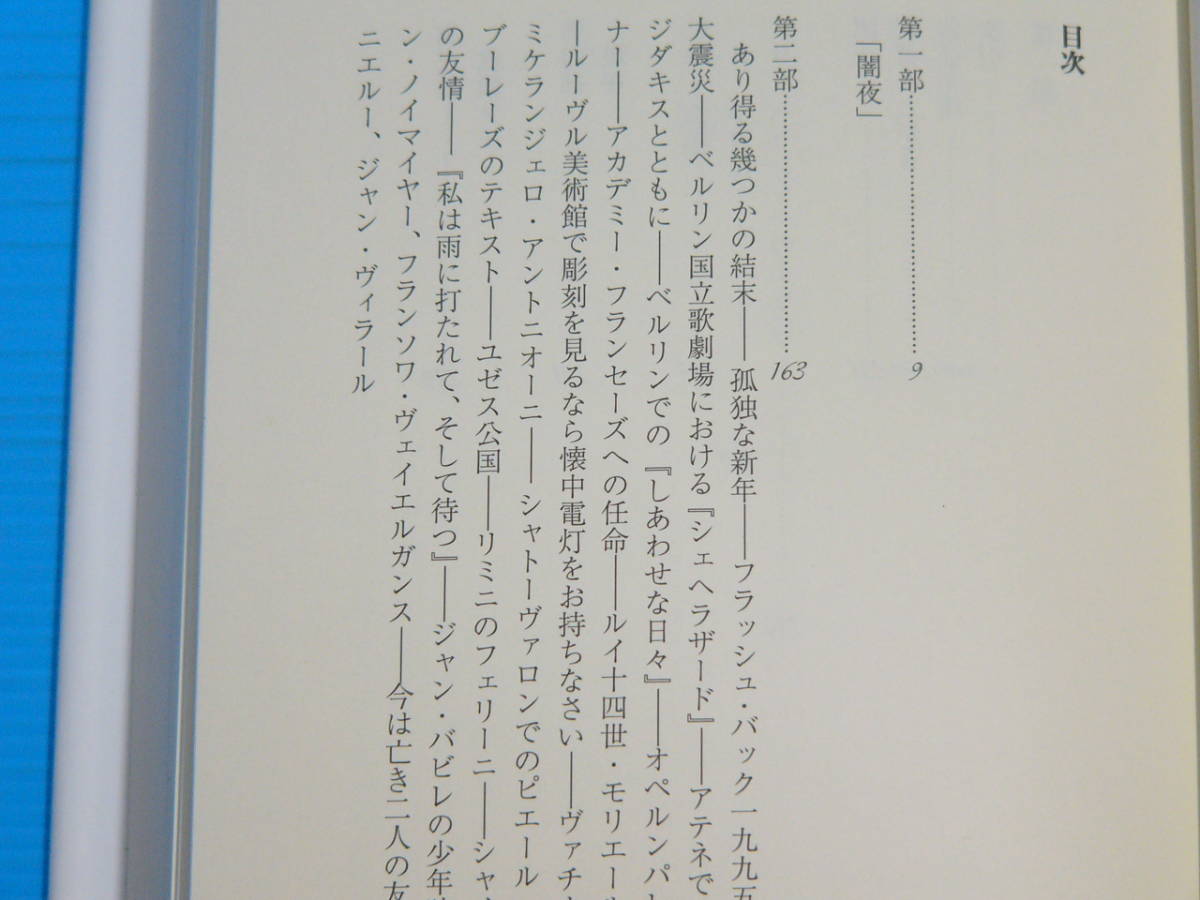 目次
第一部……………………………9
「闇夜」
第二部……………………………163
あり得る幾つかの結末――孤独な新年――フラッシュ・バック一九九五
大震災――ベルリン国立歌劇場における『シェヘラザード』――アテネで
ジダキスとともに――ベルリンでの『しあわせな日々』――オペルンパ
ナー――アカデミー・フランセーズへの任命――ルイ十四世・モリエール
―ルーヴル美術館で彫刻を見るなら懐中電灯をお持ちなさい――ヴァチ
ミケランジェロ・アントニオーニ――シャトーヴァロンでのピエール
ブーレーズのテキスト――ユゼス公国――リミニのフェリーニ――シャ
の友情――『私は雨に打たれて、そして待つ』――ジャン・バビレの少年
ン・ノイマイヤー、フランソワ・ヴェイエルガンス――今は亡き二人の友
ニエルー、ジャン・ヴィラール